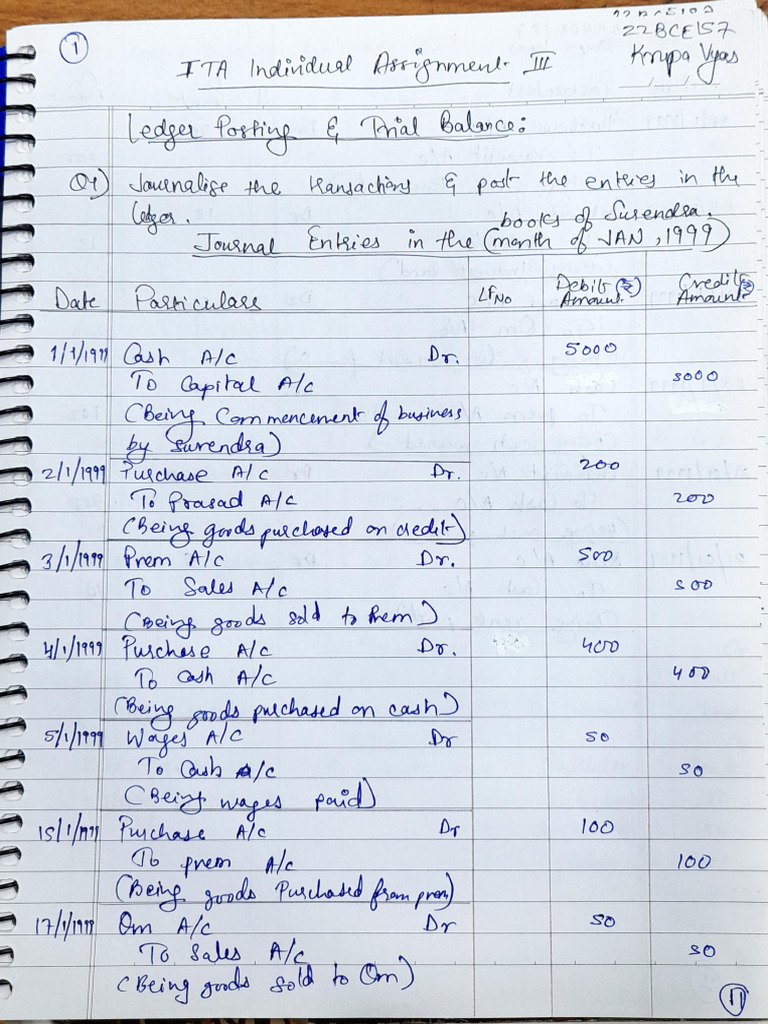 1
22BCE157
ITA Individual Assignment III
Krupa Vyas
Ledger Posting & Trial Balance:
Q1) Journalise the transactions & post the entries in the
ledger.
books of Surendra.
Journal Entries in the (month of JAN, 1999)
Date Particulars LF No Debit (₹) Amount Credit (₹) Amount
1/1/1999 Cash A/C Dr. 5000
To Capital A/C 5000
(Being Commencement of business
by Surendra)
2/1/1999 Purchase A/C Dr. 200
To Prasad A/C 200
(Being goods purchased on credit)
3/1/1999 Prem A/C Dr. 500
To Sales A/C 500
(Being goods sold to Prem)
4/1/1999 Purchase A/C Dr. 400
To Cash A/C 400
(Being goods purchased on cash)
5/1/1999 Wages A/C Dr 50
To Cash A/C 50
(Being wages paid)
15/1/1999 Purchase A/C Dr 100
To prem A/C 100
(Being goods Purchased from prem)
17/1/1999 Om A/C Dr 50
To Sales A/C 50
(Being goods sold to Om)